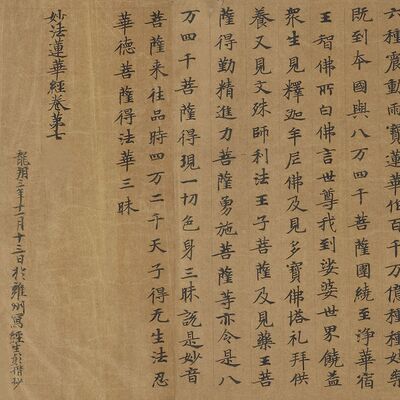 六種震動雨寶蓮華作百千萬億種種妓樂
既到本國與八万四千菩薩圍繞至淨華宿
王智佛所白佛言世尊我到娑婆世界饒益
衆生見釋迦牟尼佛及見多寶佛塔礼拜供
養又見文殊師利法王子菩薩及見藥王菩
薩得勤精進力菩薩勇施菩薩等亦令是八
万四千菩薩得現一切色身三昧說是妙音
菩薩来往品時四万二千天子得无生法忍
華德菩薩得法華三昧
妙法蓮華經卷第七
龍朔三年十一月十三日於雍州寫經生彭楷抄